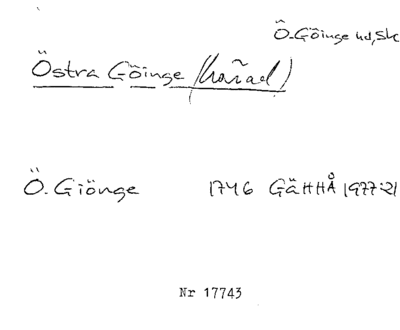 Ö. Göinge hd, Sk
Östra Göinge (härad)
Ö. Giönge 1746 GäHHÅ 1977:21
Nr 17743